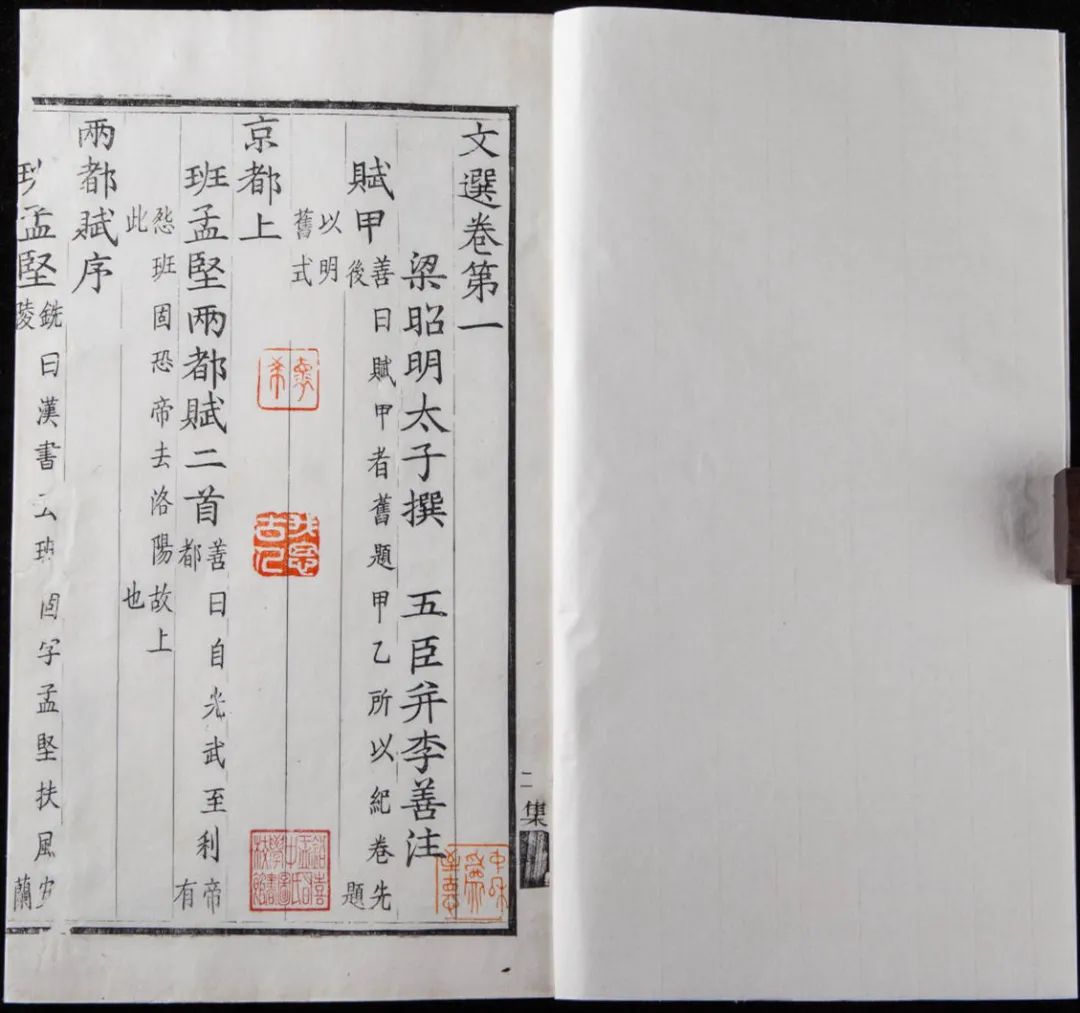 文選卷第一
梁昭明太子撰 五臣并李善注
賦甲 善曰賦甲者舊題甲乙所以紀卷先
後 題
以明
舊式
京都上
班孟堅兩都賦二首 善曰自光武至利帝
都 有
怨班固恐帝去洛陽故上
此 也
兩都賦序
班孟堅 銑曰漢書云班固字孟堅扶風安
陵 蘭
二
集
我思古人